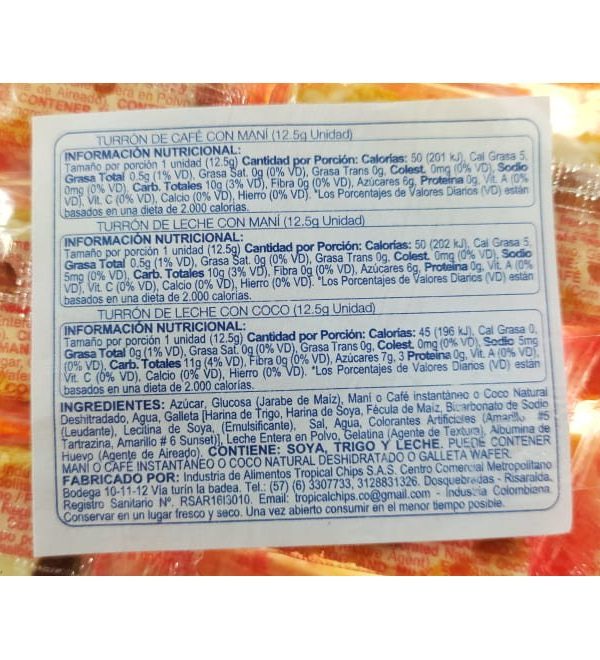 TURRÓN DE CAFÉ CON MANÍ (12.5g Unidad)
INFORMACIÓN NUTRICIONAL:
Tamaño por porción 1 unidad (12.5g) Cantidad por Porción: Calorías: 50 (201 kJ), Cal Grasa 5,
Grasa Total 0.5g (1% VD), Grasa Sat. 0g (0% VD), Grasa Trans 0g, Colest. 0mg (0% VD), Sodio
0mg (0% VD), Carb. Totales 10g (3% VD), Fibra 0g (0% VD), Azúcares 6g, Proteína 0g, Vit. A (0%
VD), Vit. C (0% VD), Calcio (0% VD), Hierro (0% VD). *Los Porcentajes de Valores Diarios (VD) están
basados en una dieta de 2.000 calorías.
TURRÓN DE LECHE CON MANÍ (12.5g Unidad)
INFORMACIÓN NUTRICIONAL:
Tamaño por porción 1 unidad (12.5g) Cantidad por Porción: Calorías: 50 (202 kJ), Cal Grasa 5,
Grasa Total 0.5g (1% VD), Grasa Sat. 0g (0% VD), Grasa Trans 0g, Colest. 0mg (0% VD), Sodio
5mg (0% VD), Carb. Totales 10g (3% VD), Fibra 0g (0% VD), Azúcares 6g, Proteína 0g, Vit. A (0%
VD), Vit. C (0% VD), Calcio (0% VD), Hierro (0% VD). *Los Porcentajes de Valores Diarios (VD) están
basados en una dieta de 2.000 calorías.
TURRÓN DE LECHE CON COCO (12.5g Unidad)
INFORMACIÓN NUTRICIONAL:
Tamaño por porción 1 unidad (12.5g) Cantidad por Porción: Calorías: 45 (196 kJ), Cal Grasa 0,
Grasa Total 0g (1% VD), Grasa Sat. 0g (0% VD), Grasa Trans 0g, Colest. 0mg (0% VD), Sodio 5mg
(0% VD), Carb. Totales 11g (4% VD), Fibra 0g (0% VD), Azúcares 7g, 3 Proteína 0g, Vit. A (0% VD),
Vit. C (0% VD), Calcio (0% VD), Hierro (0% VD). *Los Porcentajes de Valores Diarios (VD) están
basados en una dieta de 2.000 calorías.
INGREDIENTES: Azúcar, Glucosa (Jarabe de Maíz), Maní o Café instantáneo o Coco Natural
Deshitradado, Agua, Galleta [Harina de Trigo, Harina de Soya, Fécula de Maíz, Bicarbonato de Sodio
(Leudante), Lecitina de Soya, (Emulsificante), Sal, Agua, Colorantes Artificiales (Amarillo #5
Tartrazina, Amarillo # 6 Sunset)], Leche Entera en Polvo, Gelatina (Agente de Textura), Albumina de
Huevo (Agente de Aireado). CONTIENE: SOYA, TRIGO Y LECHE. PUEDE CONTENER
MANÍ O CAFÉ INSTANTÁNEO O COCO NATURAL DESHIDRATADO O GALLETA WAFER.
FABRICADO POR: Industria de Alimentos Tropical Chips S.A.S. Centro Comercial Metropolitano
Bodega 10-11-12 Vía turín la badea. Tel.: (57) (6) 3307733, 3128831326. Dosquebradas - Risaralda.
Registro Sanitario Nº. RSAR16I3010. Email: tropicalchips.co@gmail.com - Industria Colombiana.
Conservar en un lugar fresco y seco. Una vez abierto consumir en el menor tiempo posible.